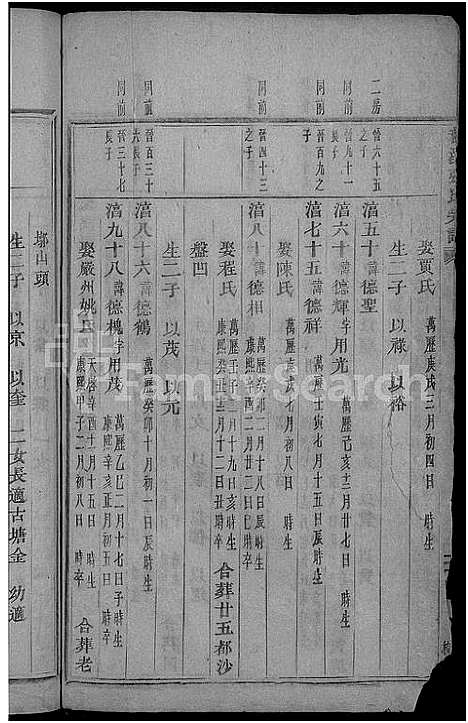 娶賈氏 萬曆庚戌三月初四日 時生
生二子 以祿 以裕
二房 晉六十五之子
湻六十一諱德聖
同前 晉九十一長子
湻六十 諱德輝 字用光 萬曆己亥十二月廿七日 時生
晉百十九之子
湻七十五諱德祥 萬曆壬寅七月十五日辰時生
娶陳氏 萬曆庚 月初八日 時生
同前 晉四十三之子
湻八十 諱德相 萬曆癸卯二月十八日辰時生
娶程氏 萬曆壬子二月十九日亥時生 康熙癸丑十二月十二日丑時卒 合葬廿五都沙
盤凹
生二子 以茂 以元
同前 晉百三十先長子
湻八十六諱德鶴 萬曆癸卯十月初一日辰時生
同前 晉三十七長子
湻九十八諱德槐 字用茂 萬曆乙巳二月十七日子時生 康熙辛亥正月初五日 時卒
娶嚴州姚氏 天啟辛酉十二月十五日 時生 康熙甲子二月初八日 時卒 合葬老
塢山頭
生二子 以京 以奎 二女長適古塘金 幼適
FamilySearch